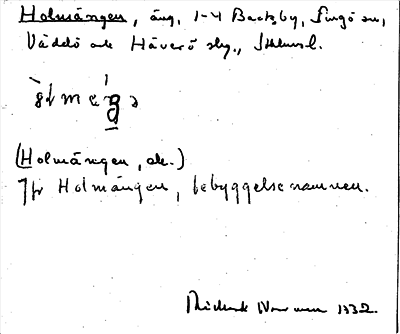 Holmängen, äng, 1-4 Backby, Singö sn,
Väddö och Häverö skg., Sthlms l.
(Holmängen, ak.)
Jfr Holmängen, bebyggelsenamnen.
1932.